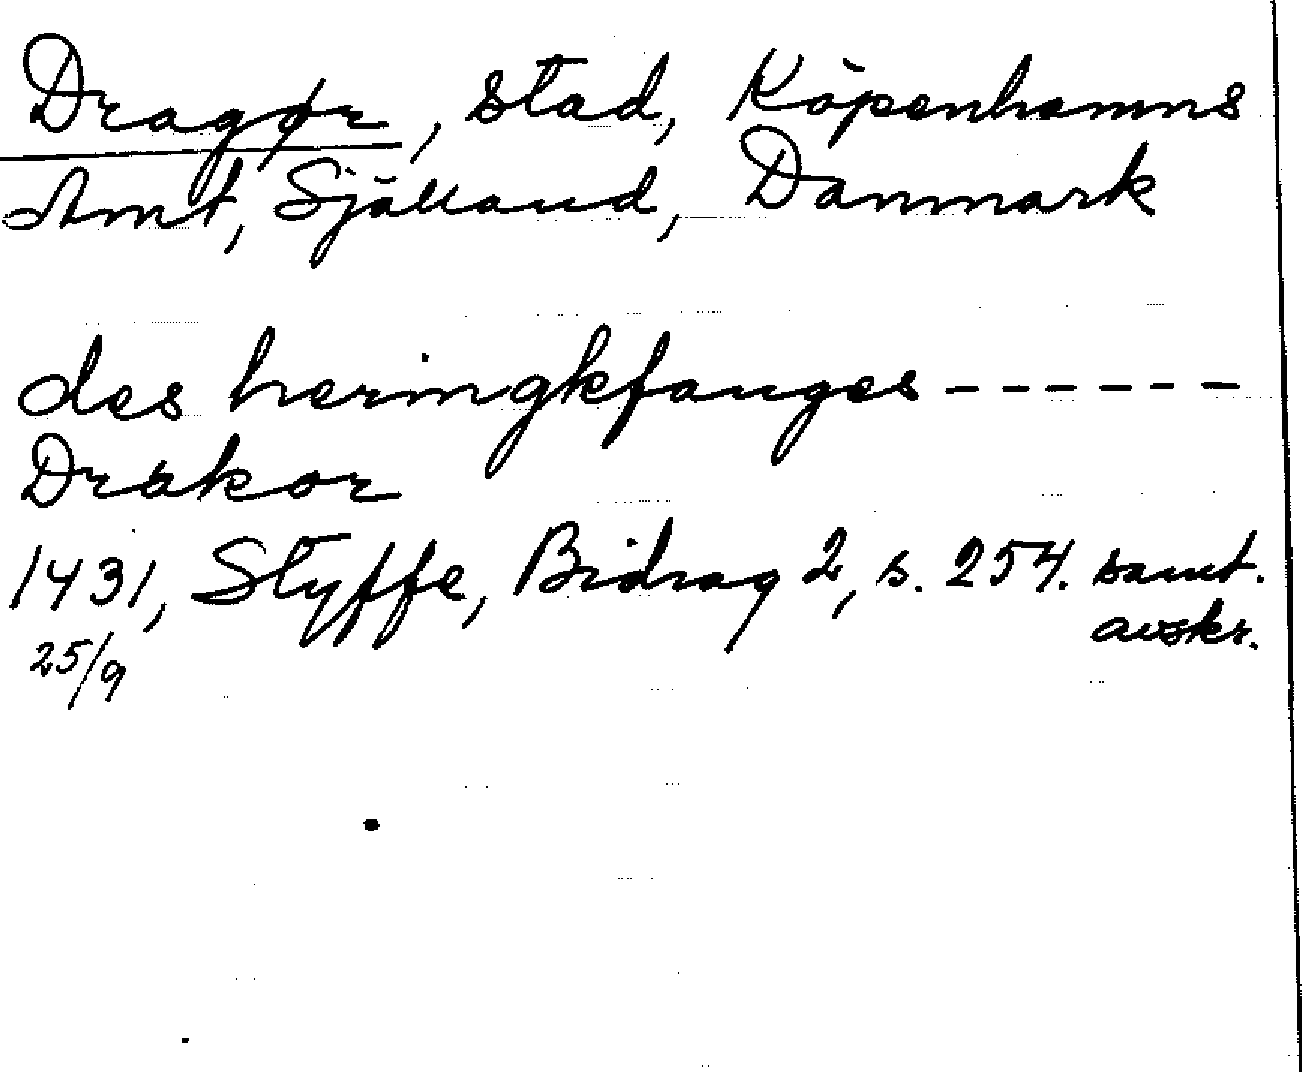 Dragør, stad, Köpenhamns
Amt, Själland, Danmark
des heringkfanges ------
Drakor
1431, Styffe, Bidrag 2, s. 254. samt.
avskr.
25/9